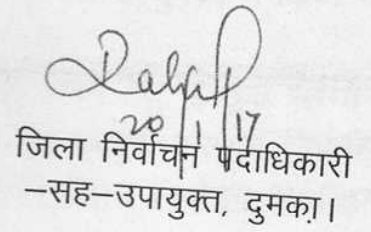 20/1/17
जिला निर्वाचन पदाधिकारी
–सह–उपायुक्त, दुमका।